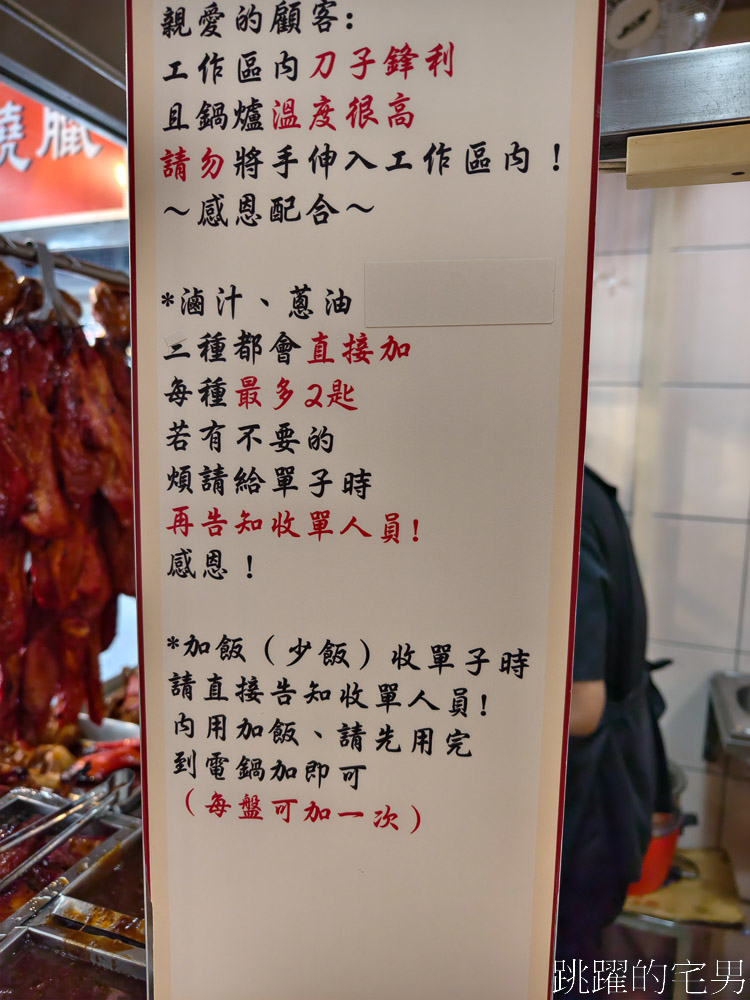 親愛的顧客:
工作區內刀子鋒利
且鍋爐溫度很高
請勿將手伸入工作區內!
～感恩配合～
燒臘
*滷汁、蔥油
二種都會直接加
每種最多2匙
若有不要的
煩請給單子時
再告知收單人員!
感恩!
*加飯(少飯)收單子時
請直接告知收單人員!
內用加飯、請先用完
到電鍋加即可
(每盤可加一次)
跳躍的宅男